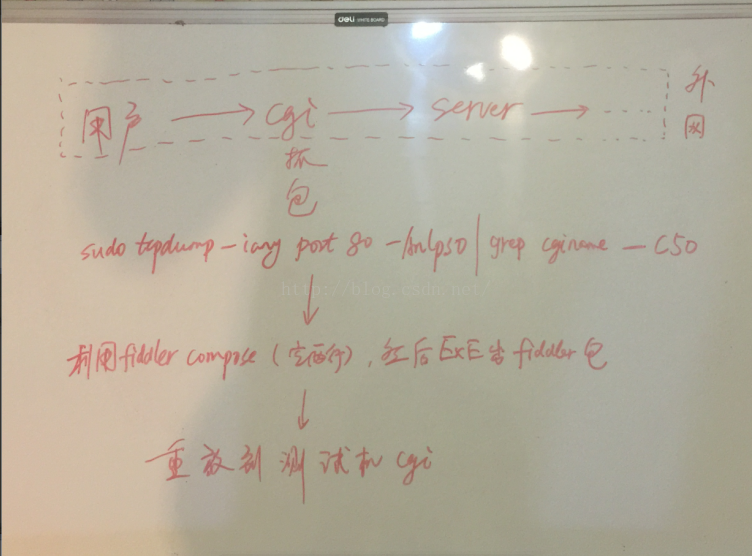 deli
用户 → cgi → server → ...... 外网
抓包
sudo tcpdump -iany port 80 -Anlps0 | grep cginame -C50
http://blog.csdn.net/
利用fiddler compose (空两行), 然后ExE fiddler包
重放到测试机cgi